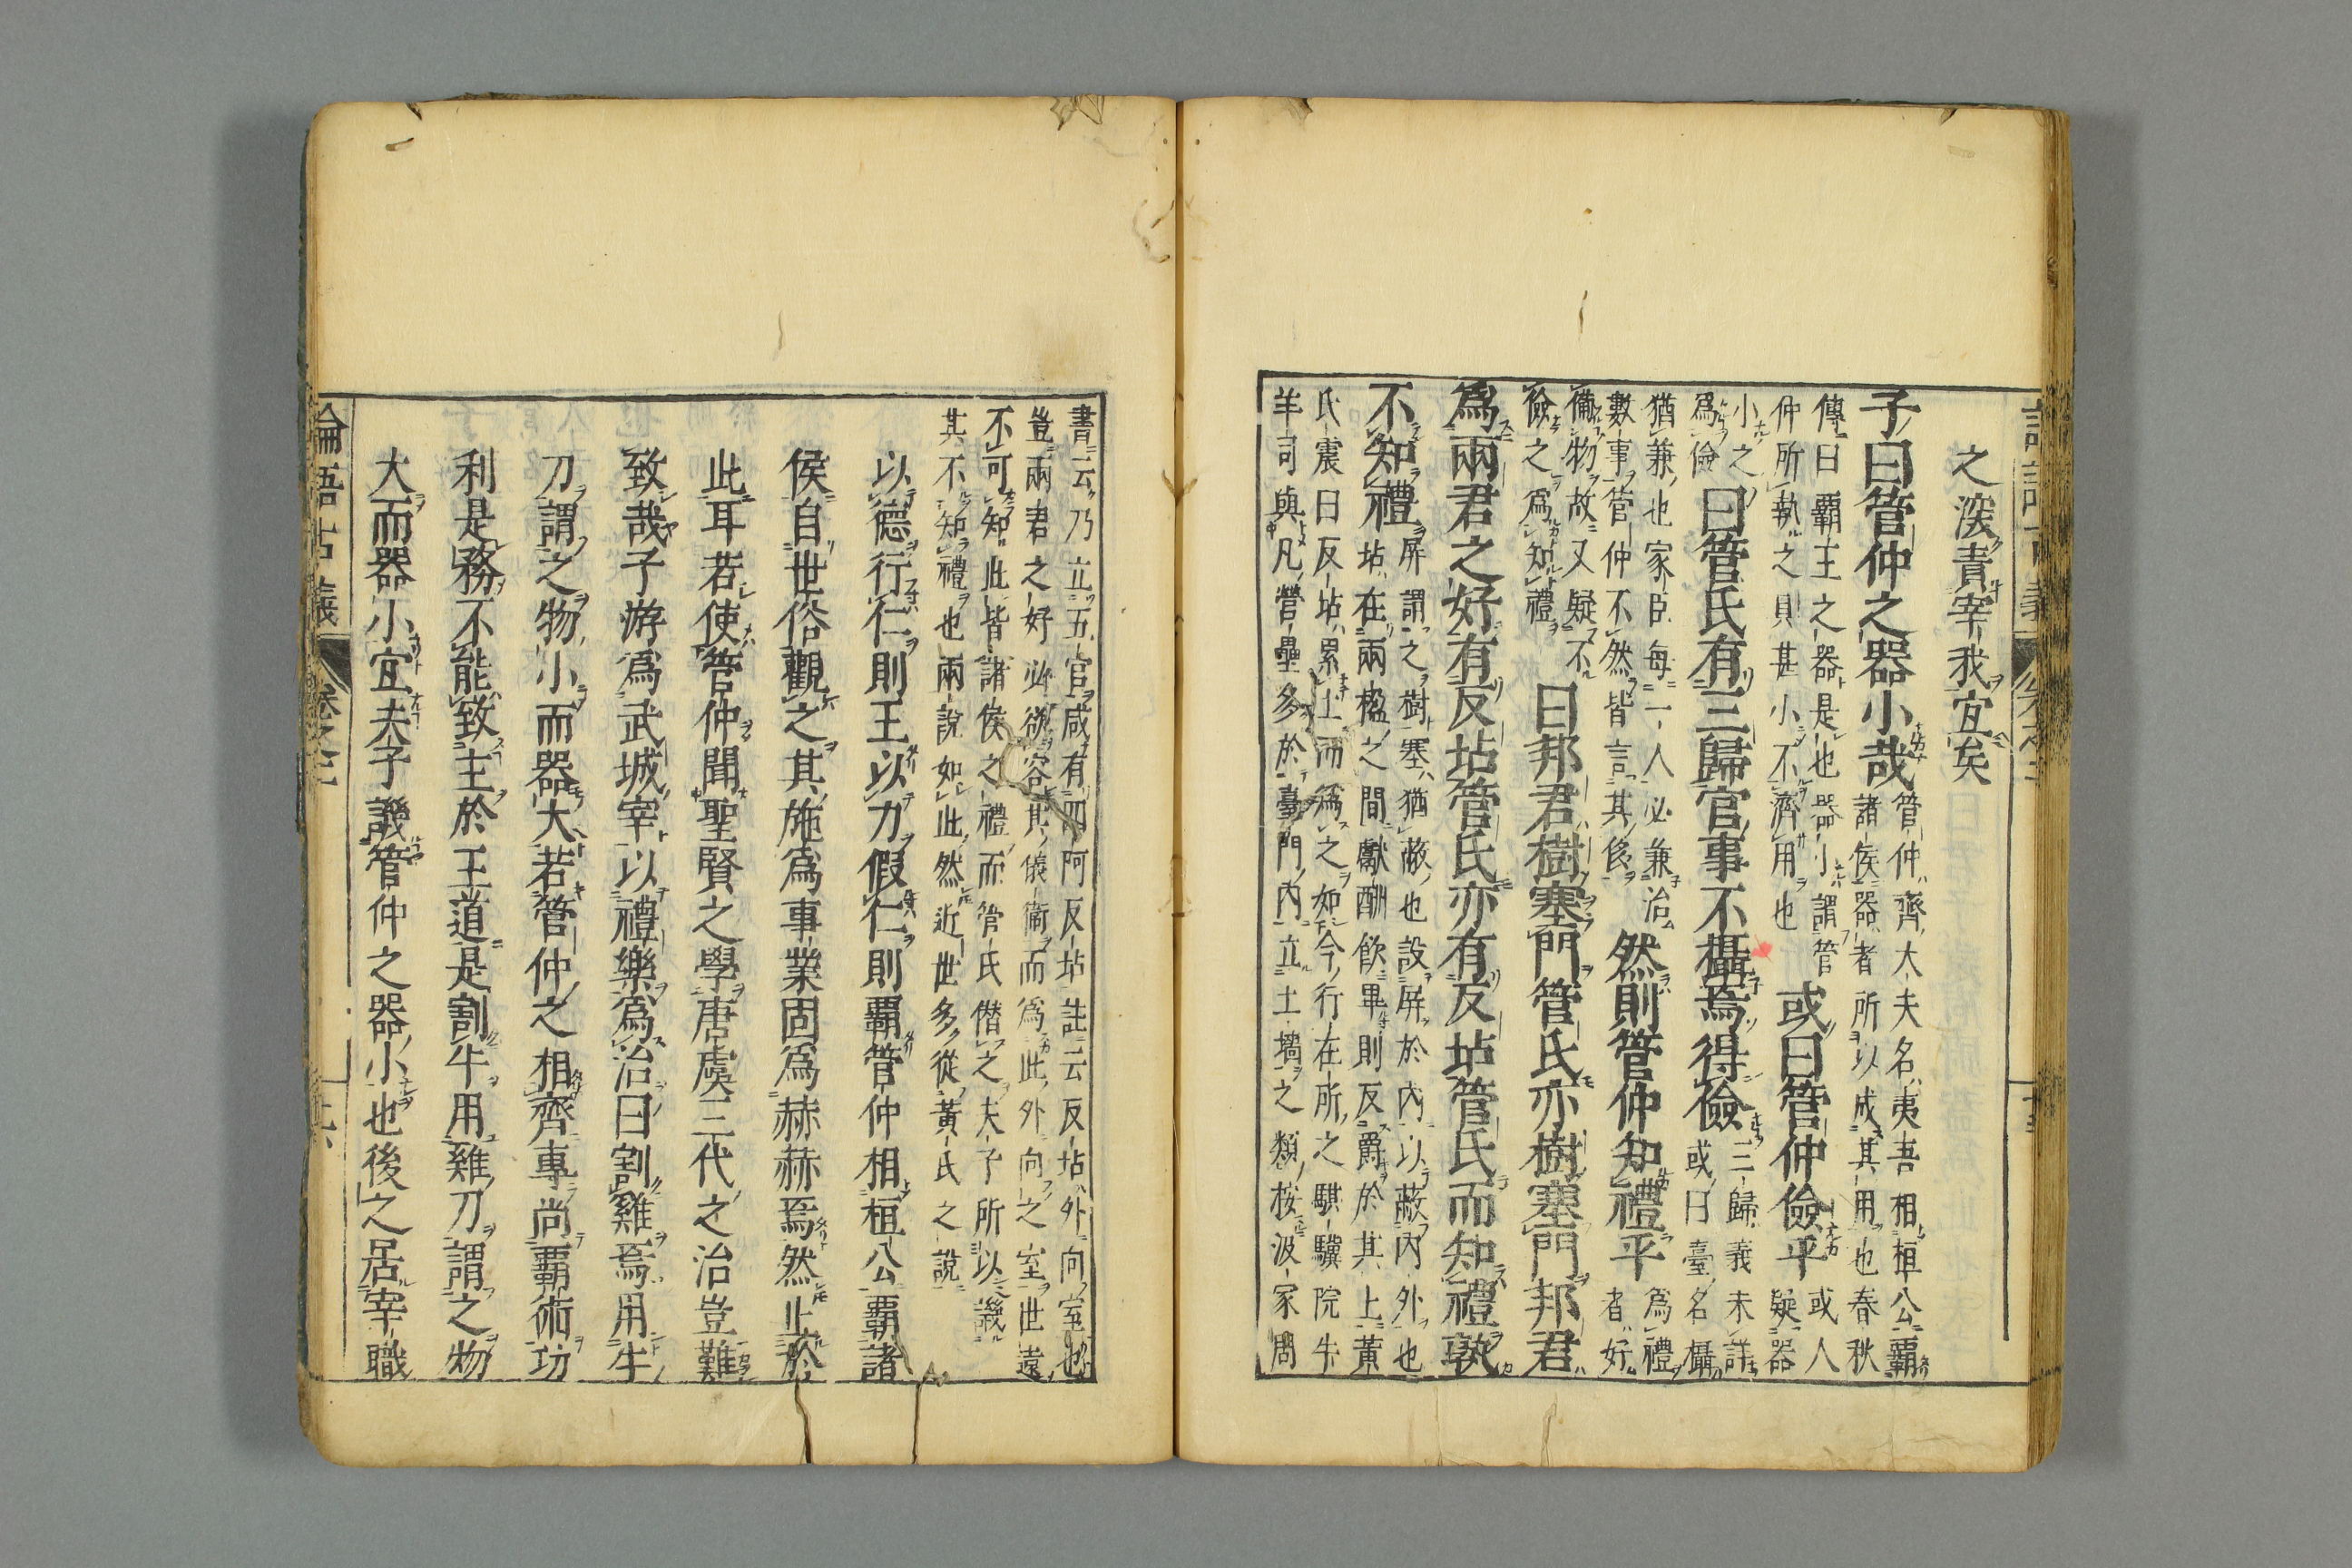 之深責宰我宜矣
子曰管仲之器小哉管仲齊大夫名夷吾相桓公霸
諸侯器者所以成其用也春秋
傳曰霸王之器是也器小謂管
仲所執之具甚小不濟用也或曰管仲儉乎或人
疑器
小之
爲儉曰管氏有三歸官事不攝焉得儉三歸義未詳
或曰臺名攝
猶兼也家臣每一人必兼治
數事管仲不然皆言其侈然則管仲知禮乎爲禮
者好
備物故又疑不
儉之爲知禮曰邦君樹塞門管氏亦樹塞門邦君
爲兩君之好有反坫管氏亦有反坫管氏而知禮孰
不知禮屏謂之樹塞猶蔽也設屏於內以蔽內外也
坫在兩楹之間獻酬飲畢則反爵於其上黃
氏震曰反坫累土而爲之如今行在所之騏驥院牛
羊司與凡營壘多於臺門內立土墻之類按汲家周
書云乃立五官咸有四阿反坫註云反坫外向室也
豈兩君之好必欲容其儀衞而爲此外向之室世遠
不可知此皆諸侯之禮而管氏僭之夫子所以譏
其不知禮也兩說如此然近世多從黃氏之說
以德行仁則王以力假仁則霸管仲相桓公霸諸
侯自世俗觀之其施爲事業固爲赫赫焉然止於
此耳若使管仲聞聖賢之學唐虞三代之治豈難
致哉子游爲武城宰以禮樂爲治曰割雞焉用牛
刀謂之物小而器大若管仲之相齊專尚霸術功
利是務不能致主於王道是割牛用雞刀謂之物
大而器小宜夫子譏管仲之器小也後之居宰職
論語古義 卷之二